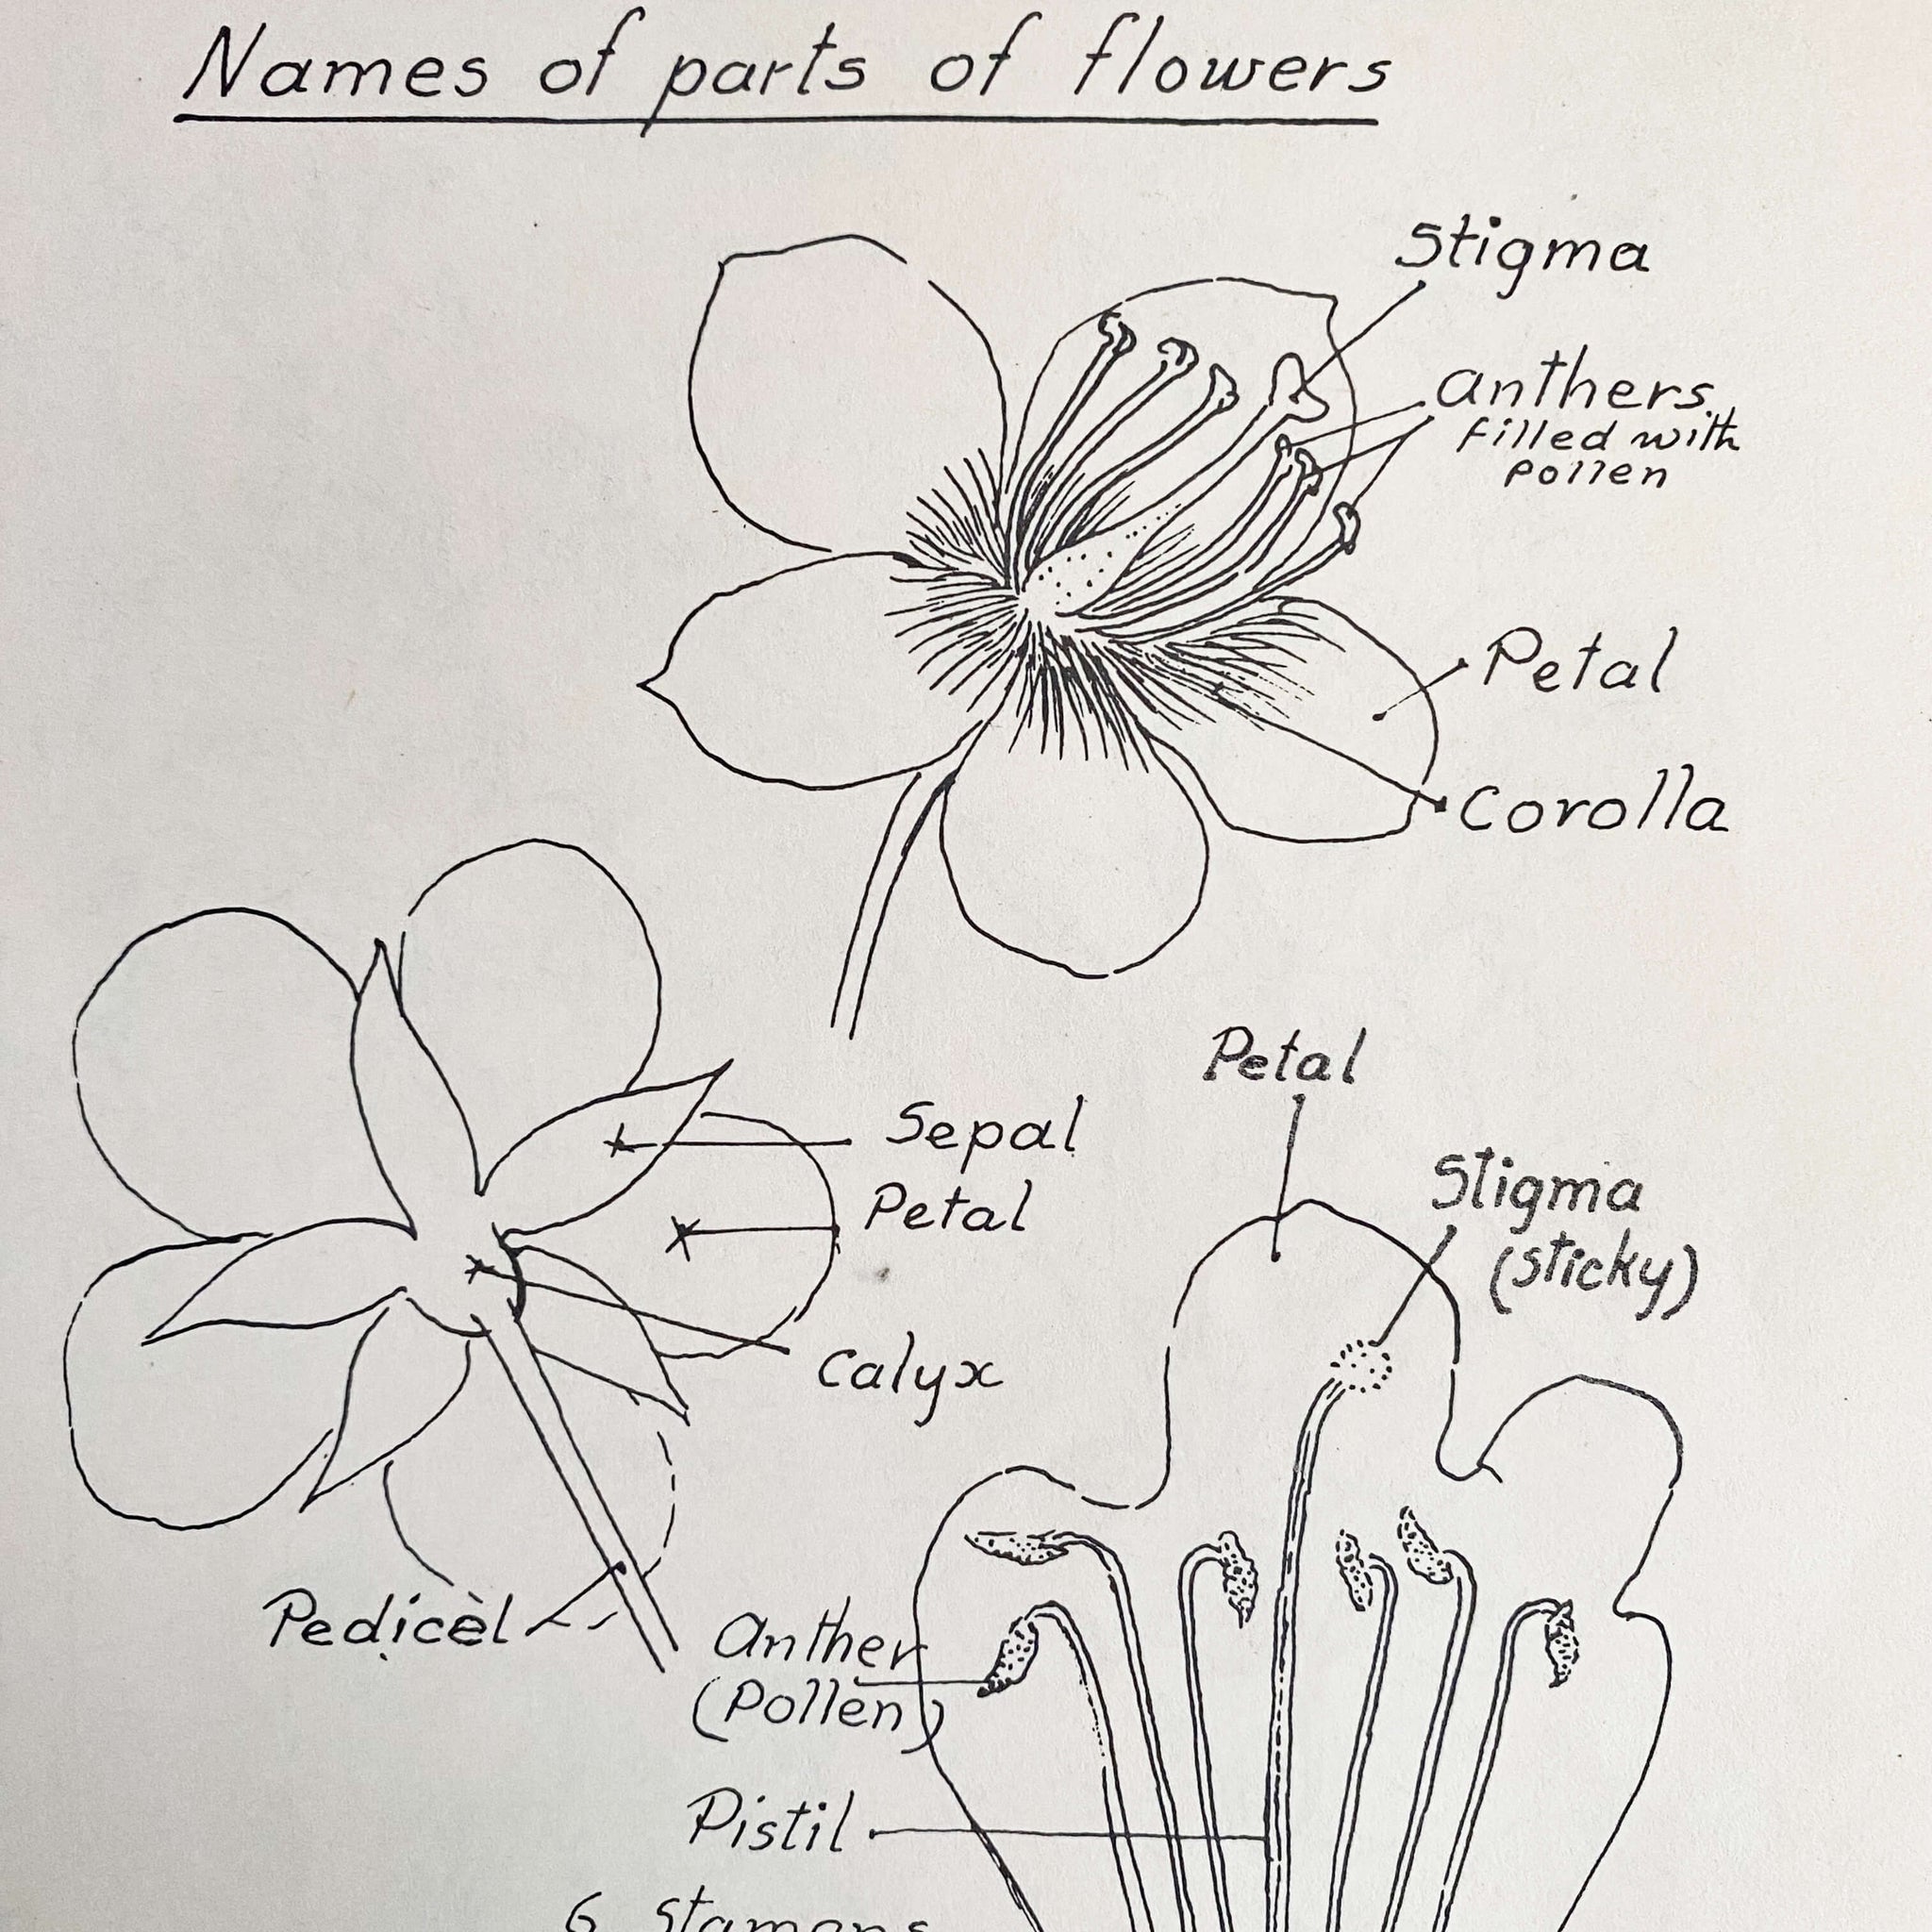 Names of parts of flowers
Stigma
anthers
filled with
pollen
Petal
Corolla
Petal
Sepal
Stigma
(sticky)
Petal
Calyx
Pedicèl
Anther
(Pollen)
Pistil
6 stamens